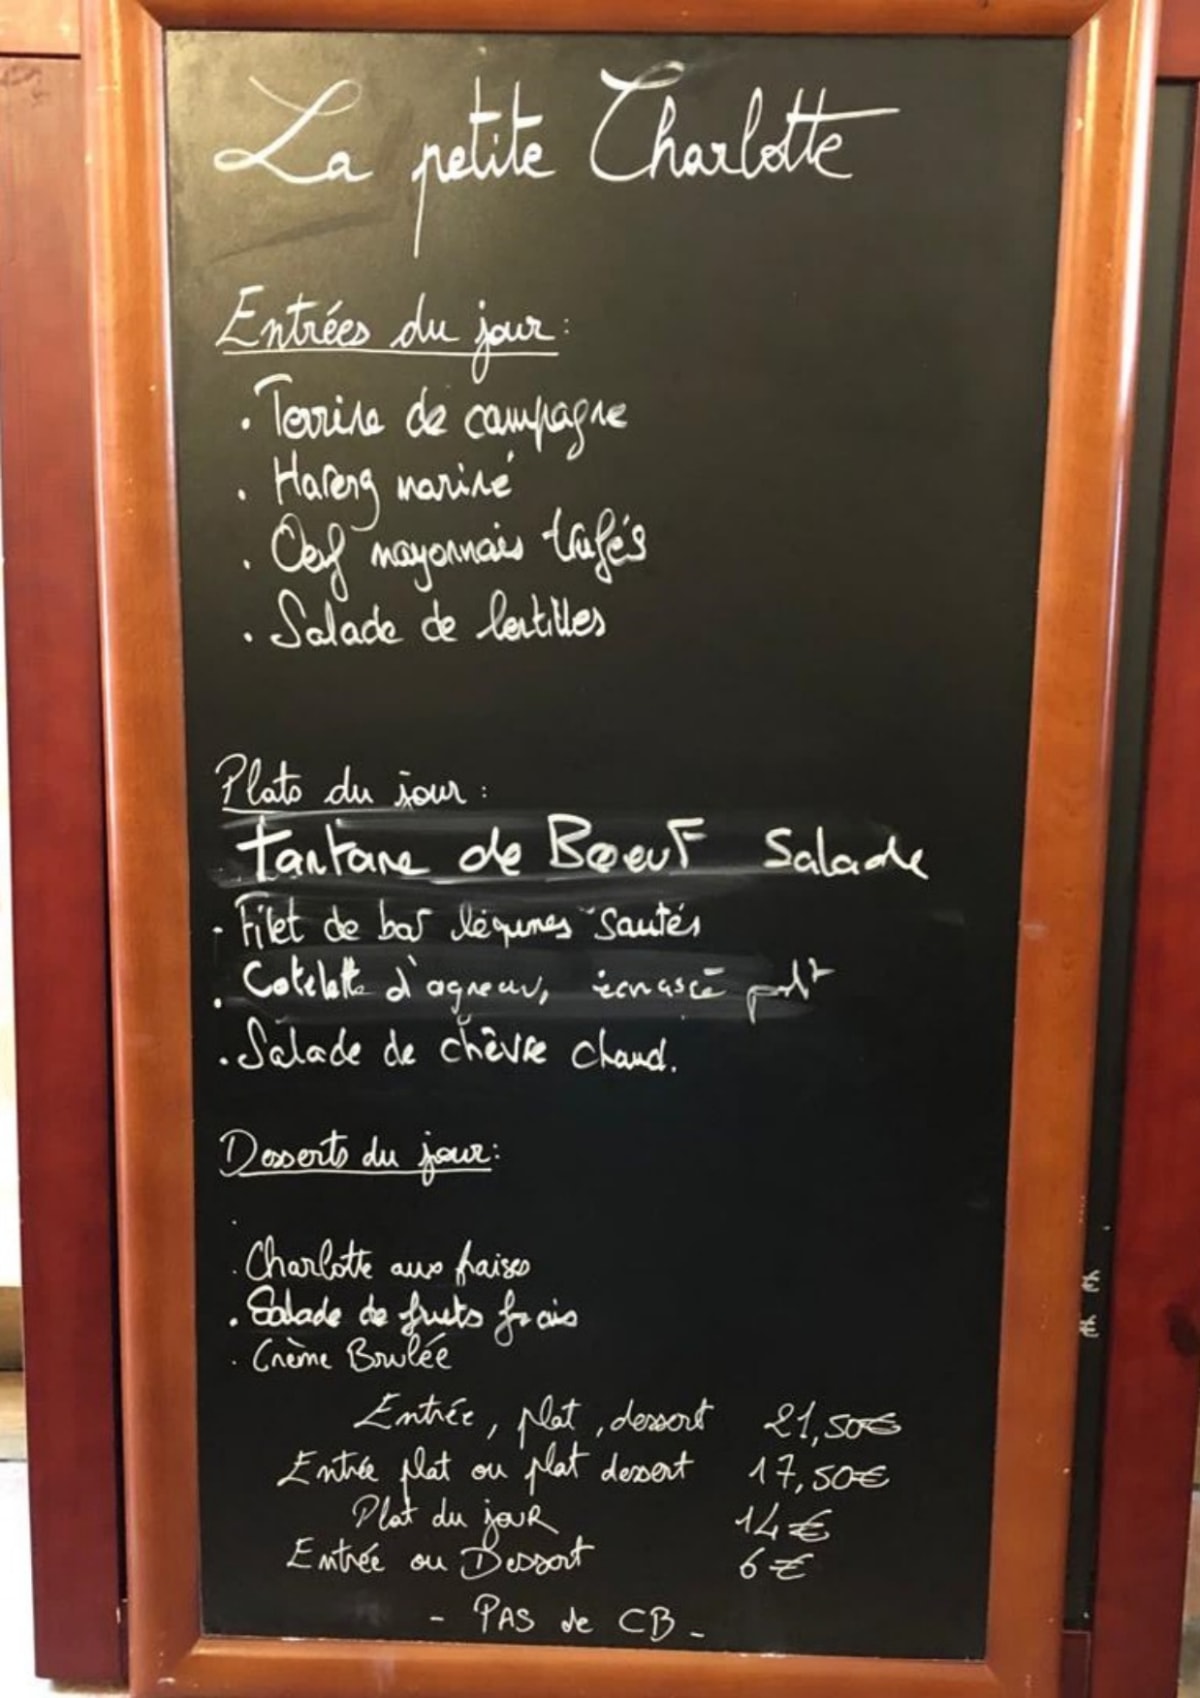 La petite Charlotte
Entrées du jour :
. Terrine de campagne
. Hareng mariné
. Oeuf mayonnais trufés
. Salade de lentilles
Plats du jour :
tartare de Boeuf Salade
. Filet de bar légumes sautés
. Cotelette d'agneau, écrasé
. Salade de chèvre chaud.
Desserts du jour :
.
. Charlotte aux fraises
. Salade de fruits frais
. Crème Brulée
Entrée, plat, dessert 21,50€
Entrée plat ou plat dessert 17,50€
Plat du jour 14€
Entrée ou Dessert 6€
- PAS de CB -
€
€